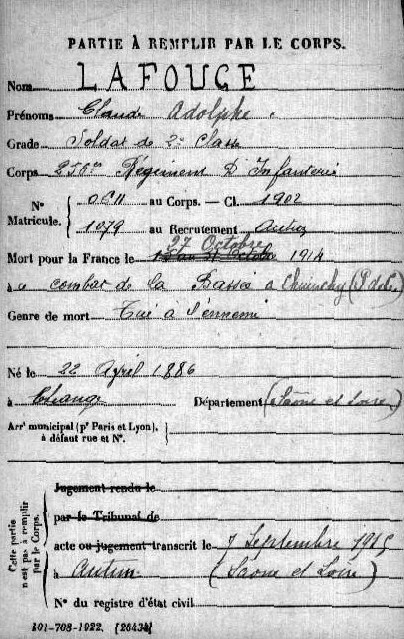 PARTIE À REMPLIR PAR LE CORPS.
Nom LAFOUGE
Prénoms Claude Adolphe
Grade Soldat de 2e Classe
Corps 256e Régiment D'Infanterie
N° Matricule. { 0611 au Corps. — Cl. 1902
1079 au Recrutement Autun
27 Octobre
Mort pour la France le 1914
à combat de la Bassée à (P de C.)
Genre de mort Tué à l'ennemi
Né le 22 Avril 1886
à Change Département (Saône et Loire)
Arrt municipal (pr Paris et Lyon), à défaut rue et N°. {
Cette partie n'est pas à remplir par le Corps. {
Jugement rendu le
par le Tribunal de
acte ou jugement transcrit le 7 Septembre 1915
à Autun (Saone et Loire)
N° du registre d'état civil
101-708-1922. [26434]